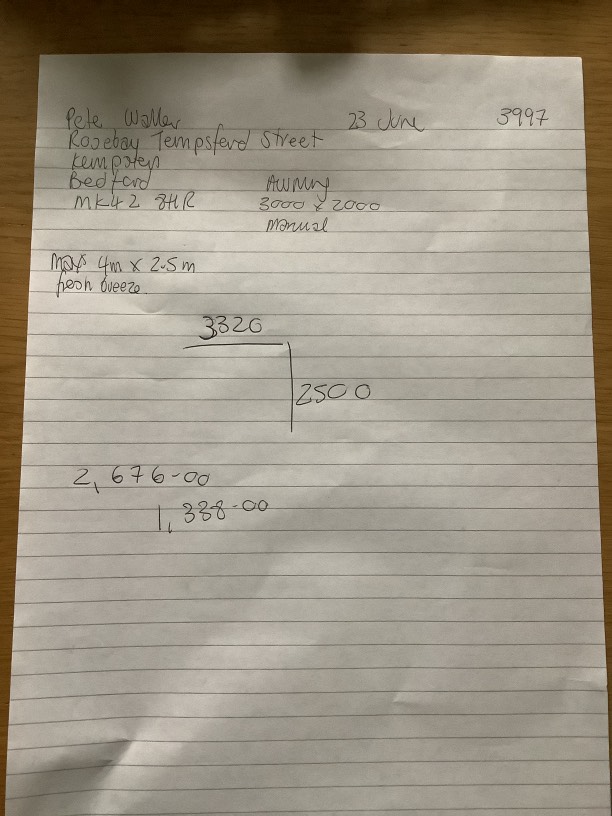 Pete Waller 23 June 3997
Rosebay Tempsford Street
Kempston
Bedford Awning
MK42 8HR 3000 x 2000
Manual
Max 4m x 2.5m
fresh breeze
3320
2500
2,676-00
1,338-00